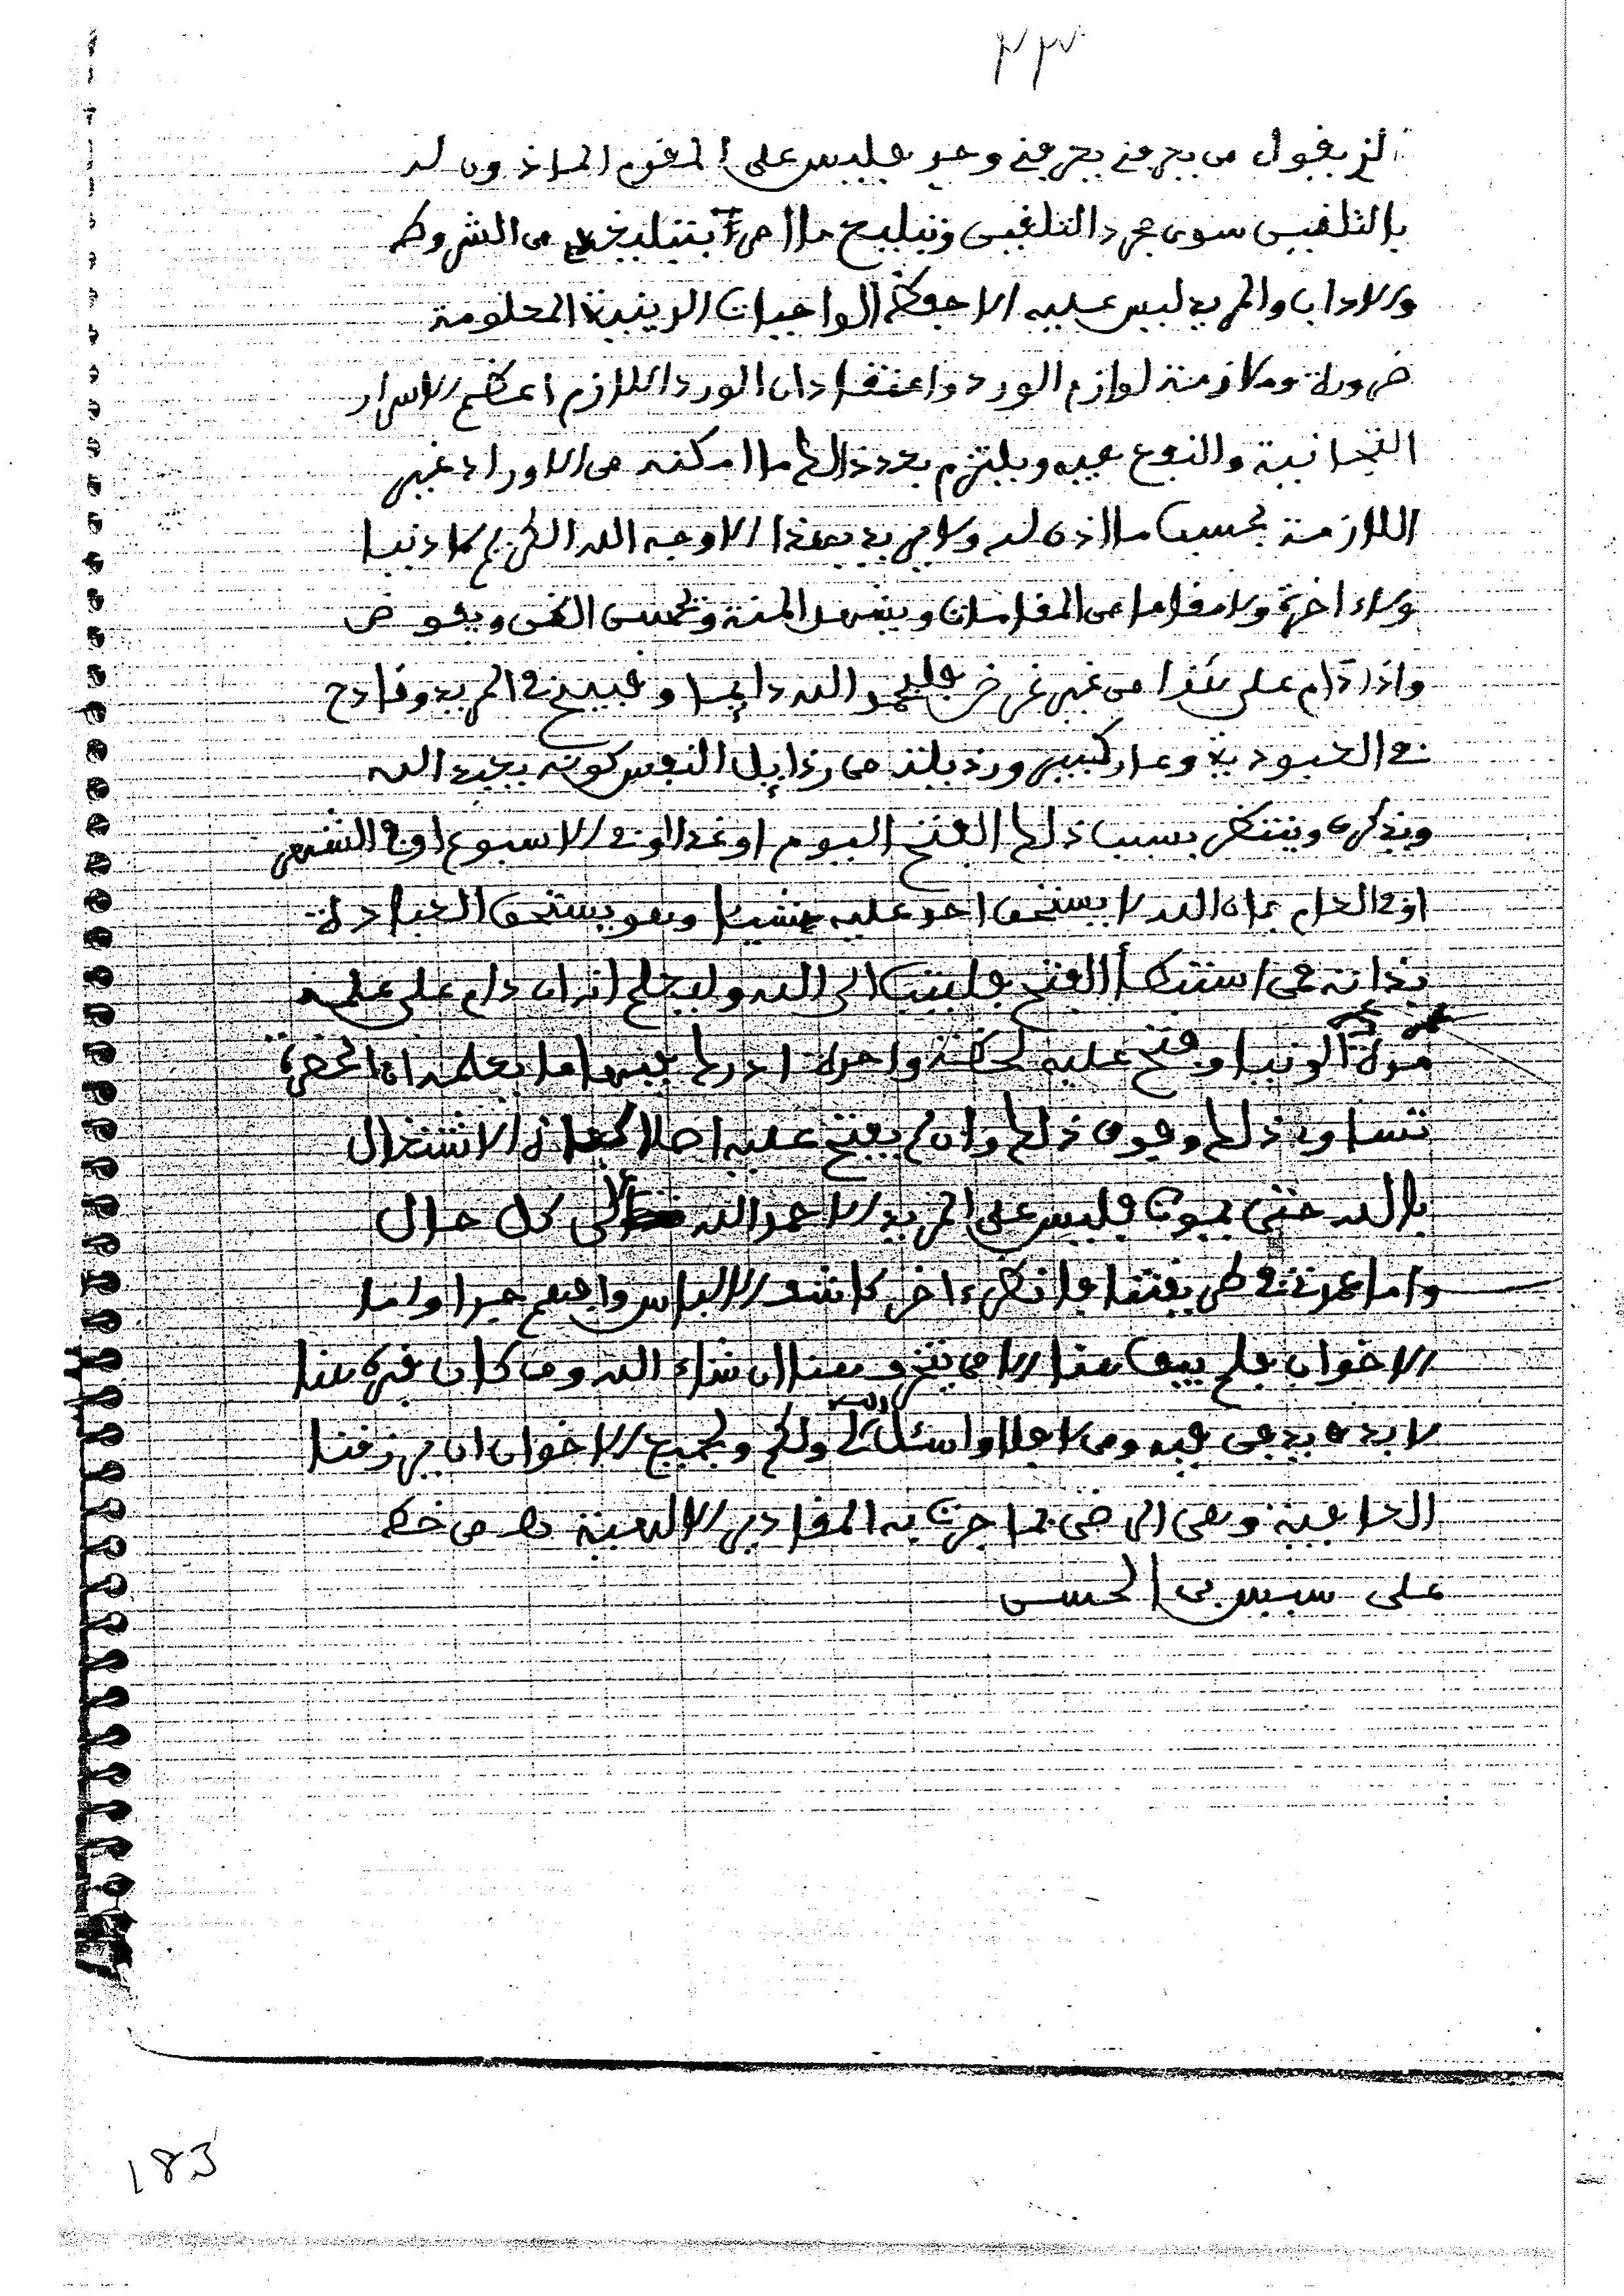 ٢٢٧
الذي يقول من يعرفني يعرفني وحدي فليس على المقدم الماذون له
بالتلقين سوى مجرد التلقين وتبليغ ما امر بتبليغه من الشروط
والاداب والمريد ليس عليه الا حفظ الواجبات الدينية المعلومة
ضرورة وملازمة لوازم الورد واعتقاد ان الورد اللازم اعظم الاسرار
التجانية والنبوع فيه ويلتزم بعد ذالك ما امكنه من الاوراد غير
اللازمة بحسب ما اذن له ولا يريد بهذا الا وجه الله الكريم لا دنيا
ولا ءاخرة ولا مقاما من المقامات ويشهد المنة وتحسين الظن ويفوض
واذا دام على هذا من غير غرض فليحمد الله دايما وقبيح في المريد وقادح
في العبودية وعار كبير ورذيلة من رذايل النفس كونه يعبد الله
ويذكره وينتظر بسبب ذلك الفتح اليوم او غدا او في الاسبوع او في الشهر
او في العام فان الله لا يستحق احد عليه شيئا وهو يستحق العبادة
بذاته فمن استبطأ الفتح فليتب الى الله وليعلم انه ان دام على عمله
مدة الدنيا وفتح عليه لحظة واحدة ادرك فيها ما يعلم ان الحضرة
تساوي ذلك وفوق ذلك وان لم يفتح عليه اصلا كفاه الاشتغال
بالله حتى يموت فليس على المريد الا حمد الله على كل حال
واما عمدتنا في طريقتنا فانظر ءاخر كاشف الالباس وافهم جيدا واما
الاخوان فلم يبق هذا الا من يتحرف هنا ان شاء الله ومن كان فبره هنا
لا بد ه يدفن فيه ومن لا فلا واسئل الله لي ولكم ولجميع الاخوان ان يرزقنا
العافية وهي الرضى بما جرت به المقادير الالهية اهـ من خط
على سيس بن الحسن
183